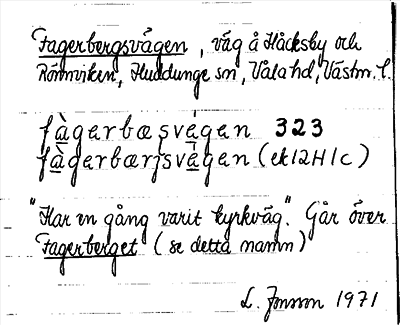 Fagerbergsvägen, väg å Håcksby och
Rönnviken, Huddunge sn, Våla hd, Västm. l.
fà̱gerbæsvé̱gen 323
fà̱gerbærjsvé̱gen (ek 12H1c)
"Har en gång varit kyrkväg." Går över
Fagerberget (se detta namn)
L. Jonsson 1971